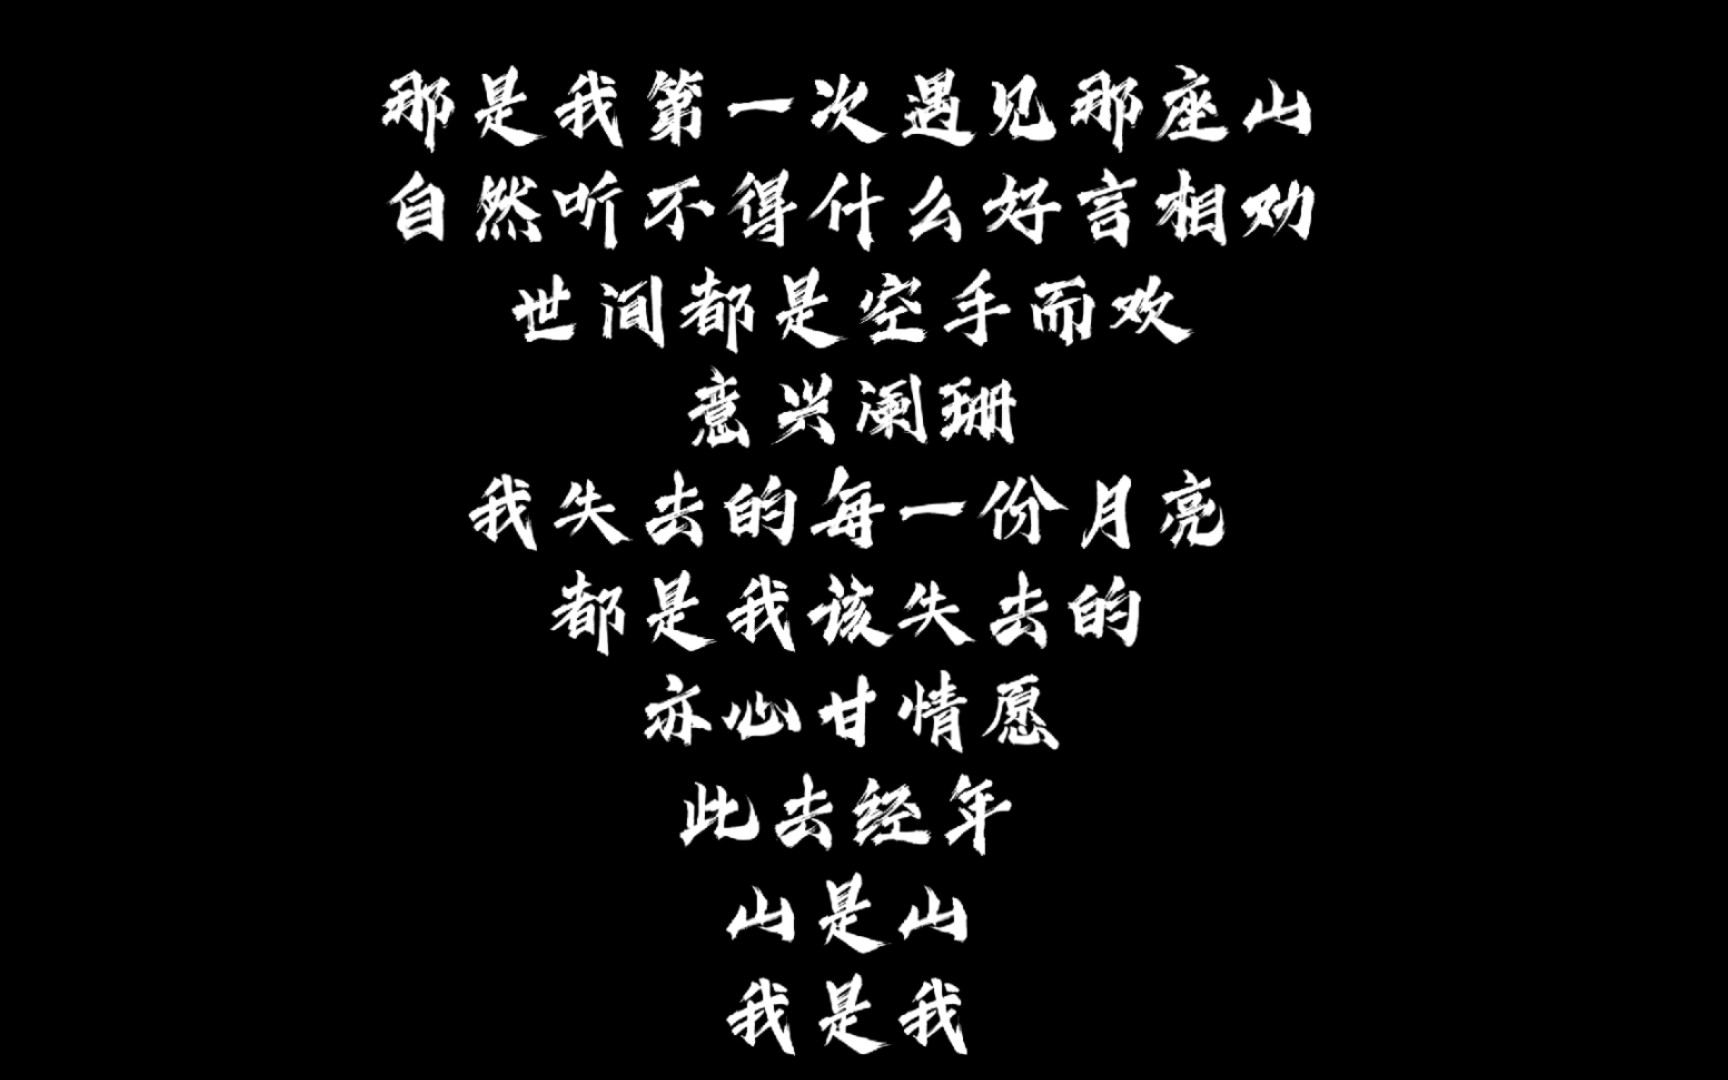 那是我第一次遇见那座山
自然听不得什么好言相劝
世间都是空手而欢
意兴阑珊
我失去的每一份月亮
都是我该失去的
亦心甘情愿
此去经年
山是山
我是我